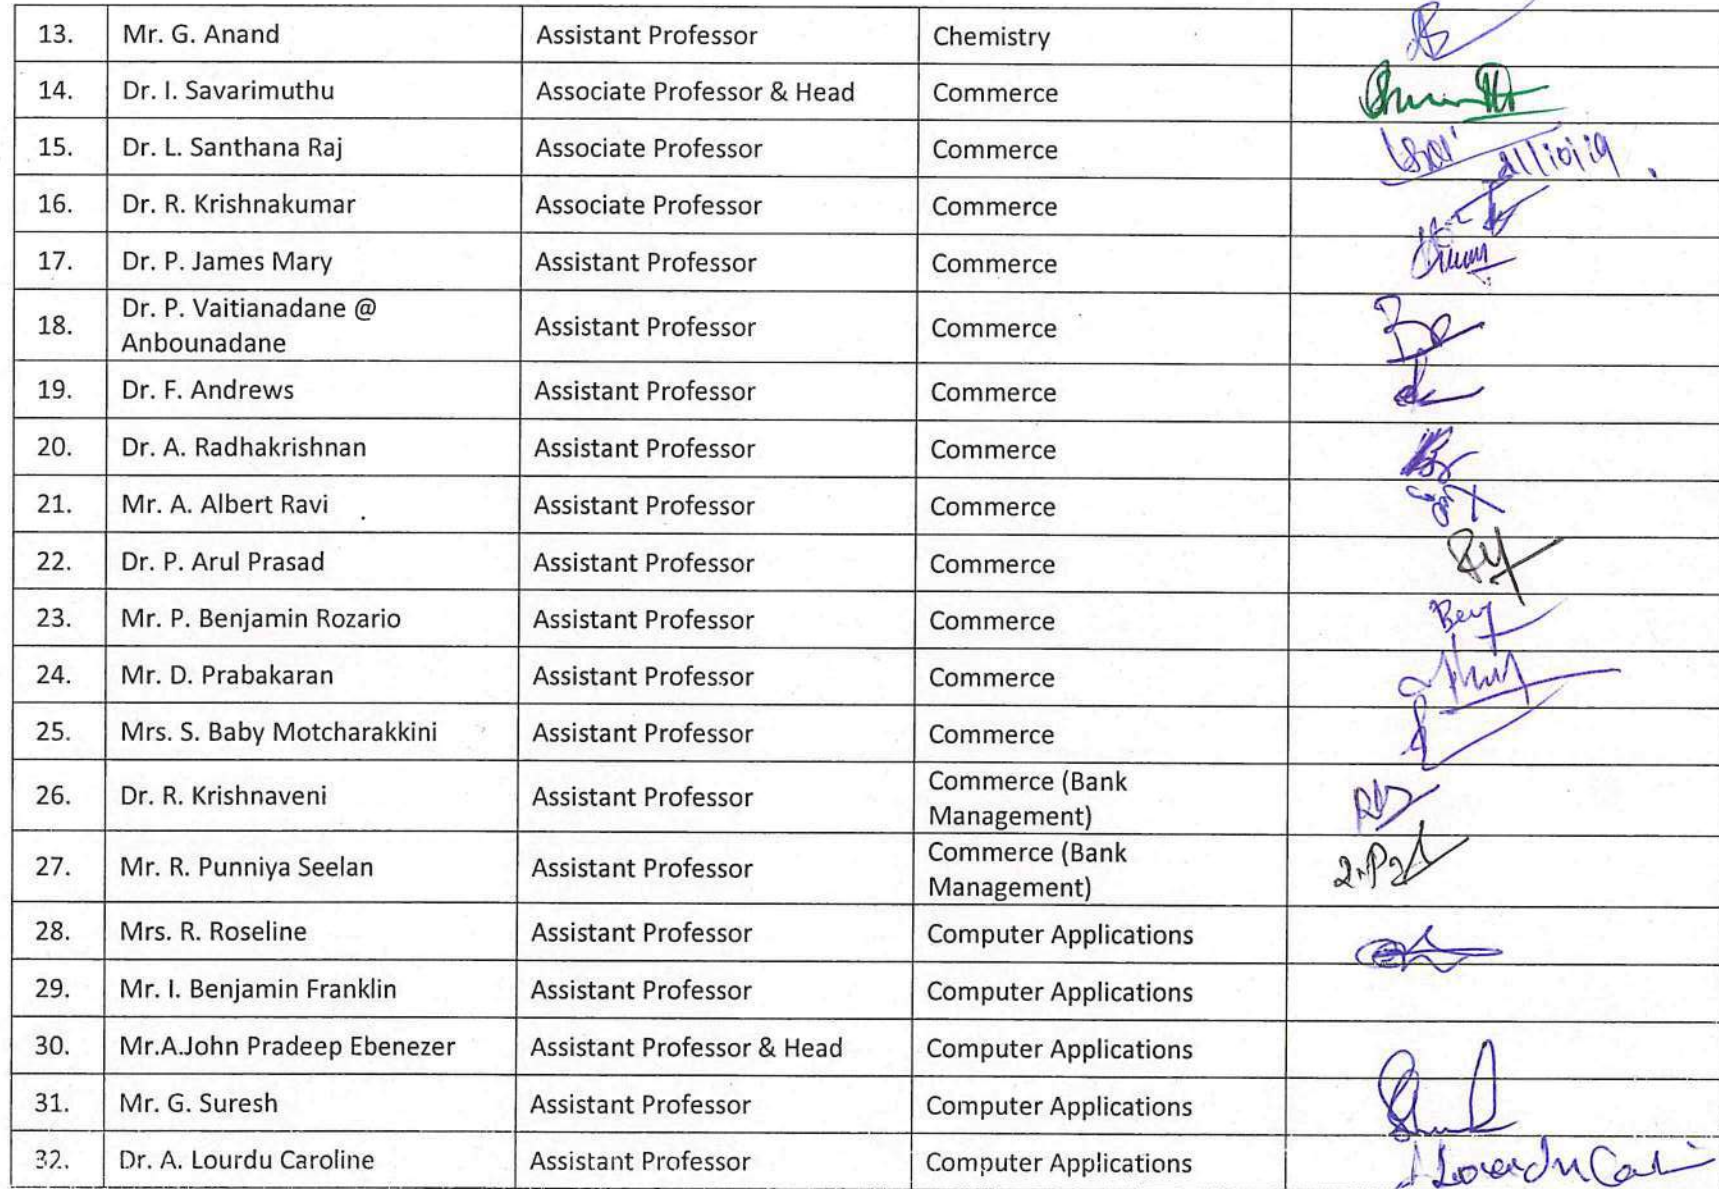 13. Mr. G. Anand Assistant Professor Chemistry
14. Dr. I. Savarimuthu Associate Professor & Head Commerce
15. Dr. L. Santhana Raj Associate Professor Commerce 21/10/19
16. Dr. R. Krishnakumar Associate Professor Commerce
17. Dr. P. James Mary Assistant Professor Commerce
18. Dr. P. Vaitianadane @
Anbounadane Assistant Professor Commerce
19. Dr. F. Andrews Assistant Professor Commerce
20. Dr. A. Radhakrishnan Assistant Professor Commerce
21. Mr. A. Albert Ravi Assistant Professor Commerce
22. Dr. P. Arul Prasad Assistant Professor Commerce
23. Mr. P. Benjamin Rozario Assistant Professor Commerce
24. Mr. D. Prabakaran Assistant Professor Commerce
25. Mrs. S. Baby Motcharakkini Assistant Professor Commerce
26. Dr. R. Krishnaveni Assistant Professor Commerce (Bank
Management)
27. Mr. R. Punniya Seelan Assistant Professor Commerce (Bank
Management)
28. Mrs. R. Roseline Assistant Professor Computer Applications
29. Mr. I. Benjamin Franklin Assistant Professor Computer Applications
30. Mr.A.John Pradeep Ebenezer Assistant Professor & Head Computer Applications
31. Mr. G. Suresh Assistant Professor Computer Applications
32. Dr. A. Lourdu Caroline Assistant Professor Computer Applications